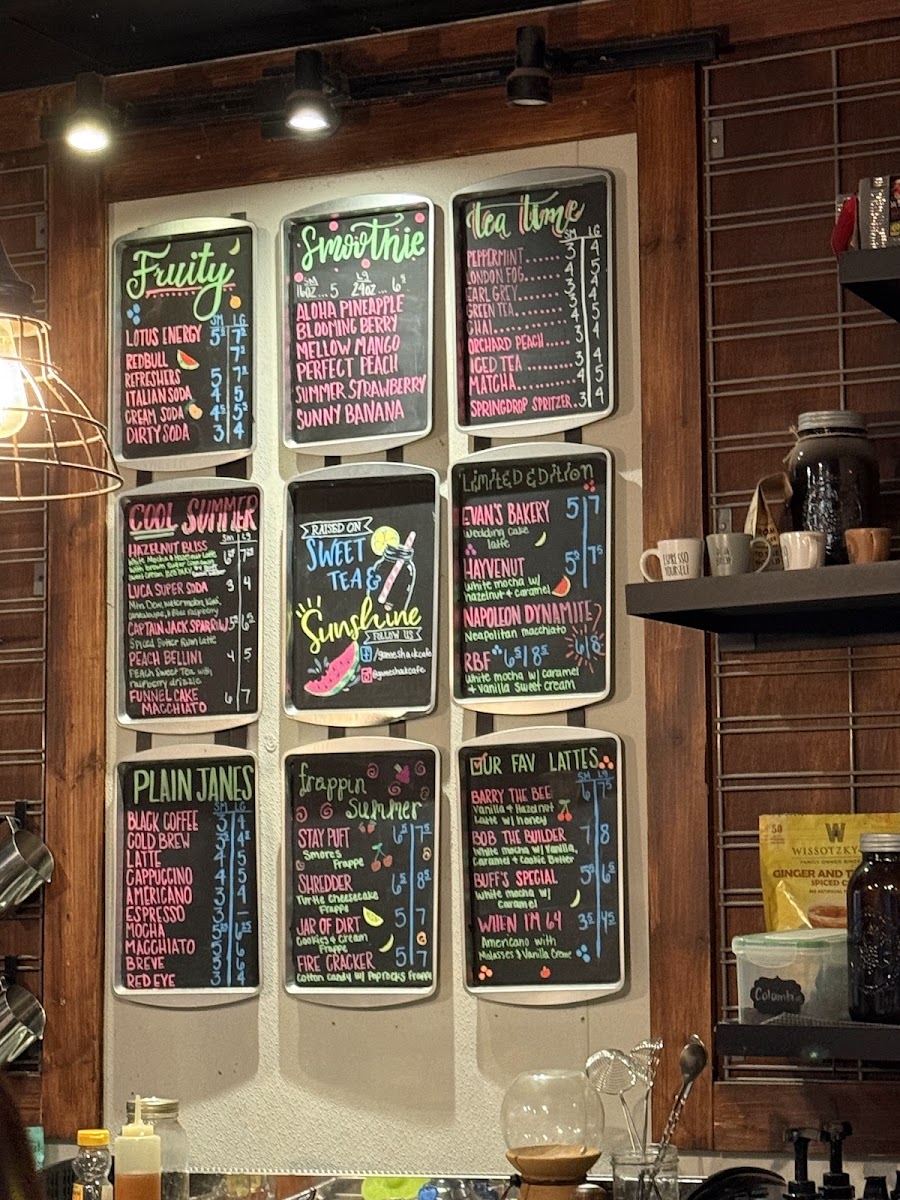 Fruity
SM LG
LOTUS ENERGY 5⁵ 7⁵
REDBULL 7⁵
REFRESHERS 5 7
ITALIAN SODA 4 5
CREAM SODA 4⁵ 5⁵
DIRTY SODA 3 4
Smoothie
SM LG
16OZ...5 24OZ...6⁵
ALOHA PINEAPPLE
BLOOMING BERRY
MELLOW MANGO
PERFECT PEACH
SUMMER STRAWBERRY
SUNNY BANANA
tea time
SM LG
PEPPERMINT 3 4
LONDON FOG 4 5
EARL GREY 3 4
GREEN TEA 3 4
CHAI 4 5
ORCHARD PEACH 3 4
ICED TEA 3 4
MATCHA 4 5
SPRINGDROP SPRITZER 3 4
COOL SUMMER
SM LG
HAZELNUT BLISS
White Mocha & Hazelnut Latte
with brown sugar cinnamon
sweet cream
LUCA SUPER SODA 3 4
Mtn Dew, watermelon, kiwi,
cantaloupe, & blue raspberry
CAPTAIN JACK SPARROW 5²⁵ 6²⁵
Spiced Butter Rum Latte
PEACH BELLINI 4 5
PEACH Sweet Tea with
raspberry drizzle
FUNNEL CAKE
MACCHIATO 6 7
RAISED ON
SWEET
TEA &
Sunshine
FOLLOW US
/gameshackcafe
@gameshackcafe
LIMITED EDITION
EVAN'S BAKERY 5 7
Wedding cake
latte
HAYVENUT 5⁵ 7⁵
White mocha w/
hazelnut & caramel
NAPOLEON DYNAMITE
Neapolitan macchiato 6/8
RBF 6⁵/8⁵
White mocha w/ caramel
& vanilla sweet cream
PLAIN JANES
SM LG
BLACK COFFEE 3 4
COLD BREW 4⁵
LATTE 4 5
CAPPUCCINO 4 5
AMERICANO 3 4
ESPRESSO 3 —
MOCHA 6²⁵
MACCHIATO 5 6
BREVE 5 6
RED EYE 3 4
frappin
Summer
STAY PUFT 6⁵ 7⁵
Smores
Frappe
SHREDDER 6⁵ 8⁵
Turtle Cheesecake
Frappe
JAR OF DIRT 5 7
Cookies & Cream
Frappe
FIRE CRACKER 5 7
Cotton Candy w/ Poprocks Frappe
OUR FAV LATTES
SM LG
BARRY THE BEE 6 7⁵
Vanilla & Hazelnut
Latte w/ honey
BOB THE BUILDER 7 8
White mocha w/ Vanilla,
Caramel & Cookie Butter
BUFF'S SPECIAL 5⁵ 6⁵
White mocha w/
Caramel
WHEN I'M 64 3⁵ 4⁵
Americano with
Molasses & Vanilla Creme
ESPRESSO
YOURSELF
W
WISSOTZKY
GINGER AND T
SPICED
Columbia